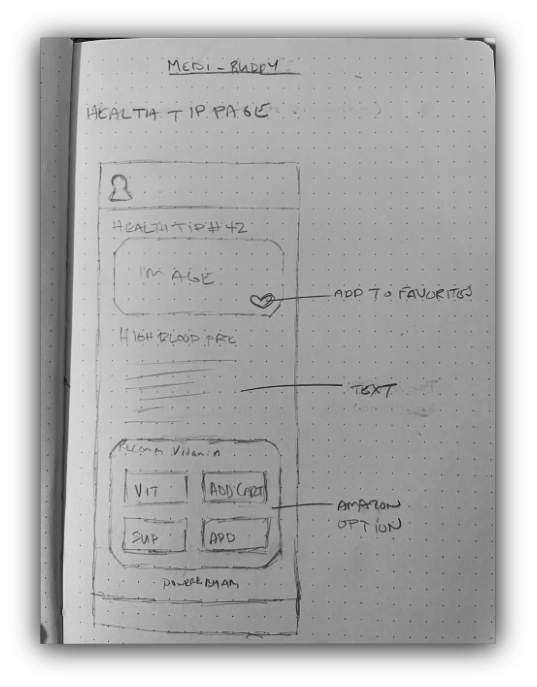 MEDI-BUDDY
HEALTH TIP PAGE
HEALTH TIP #42
IMAGE
ADD TO FAVORITES
HIGH BLOOD PRE
TEXT
Vitamin
VIT
ADD CART
AMAZON
OPTION
SUP
ADD